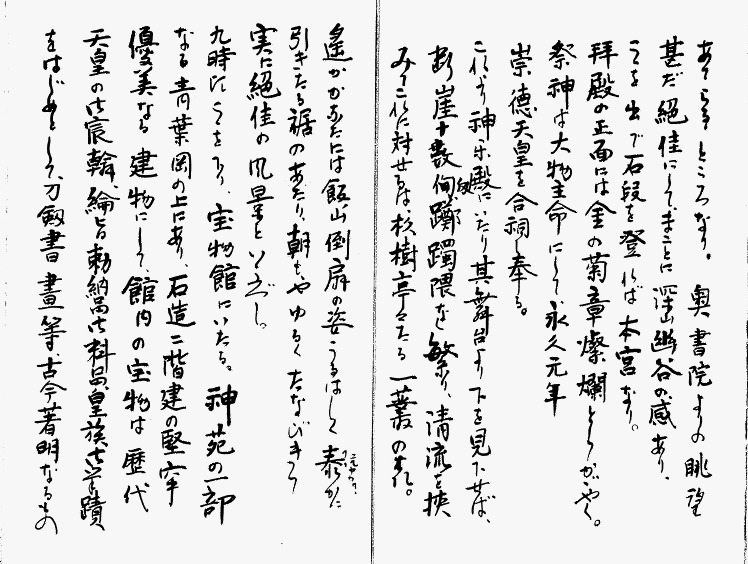 あたらするところなり。奥書院よりの眺望
甚だ絶佳にして、まことに深山幽谷の感あり、
こゝを出で石段を登れば本宮なり。
拝殿の正面には金の菊章燦爛とかがやく。
祭神は大物主命にして、永久元年
崇徳天皇を合祠し奉る。
これより神楽殿にいたり其舞台より下を見下せば、
断崖十数間、躑躅隈なく繁り、清流を挟
みてこれに対せるは、杉樹亭々たる一叢の森。
遙かかなたには飯山倒扇の姿うるはしく
引きたる裾のあたり、朝もやゆるくたなびきて
実に絶佳の風景といふべし。
九時頃こゝを下り、宝物館にいたる。神苑の一部
なる青葉岡の上にあり、石造二階建の堅牢
優美なる建物にして館内の宝物は歴代
天皇の御宸翰、綸旨勅納品御料品、皇族御筆蹟
をはじめとして、刀剱書画等、古今著明なるもの